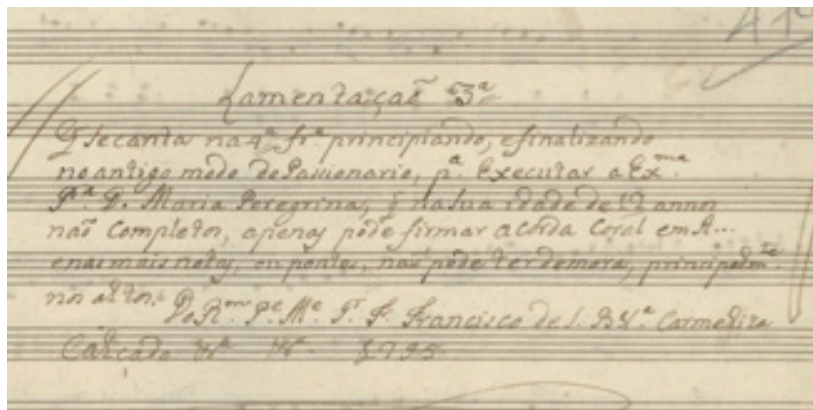 419
Lamentaçaõ 3ª
Q̃ se canta na 4ª fr.ª principiando, e finalizando
no antigo modo do Passionario, p.ª Executar a Ex.ma
Sr.ª D. Maria Peregrina, q̃ na sua idade de 12 annos
naõ Completos, apenas póde firmar a Corda Coral em A...
e nas mais notas, ou pontos, naõ póde ter demora, principalm.te
nos altos.
Do R.mo P.e M.e Fr. Francisco de S. Carmelita
Calçado 1795